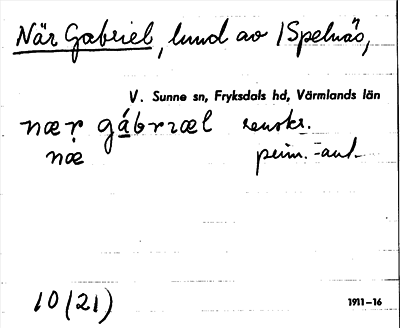 När Gabriel, lund av Spelnäs,
V. Sunne sn, Fryksdals hd, Värmlands län
nær gábrıæl renskr.
næ prim.-ant.
10 (21)
1911–16